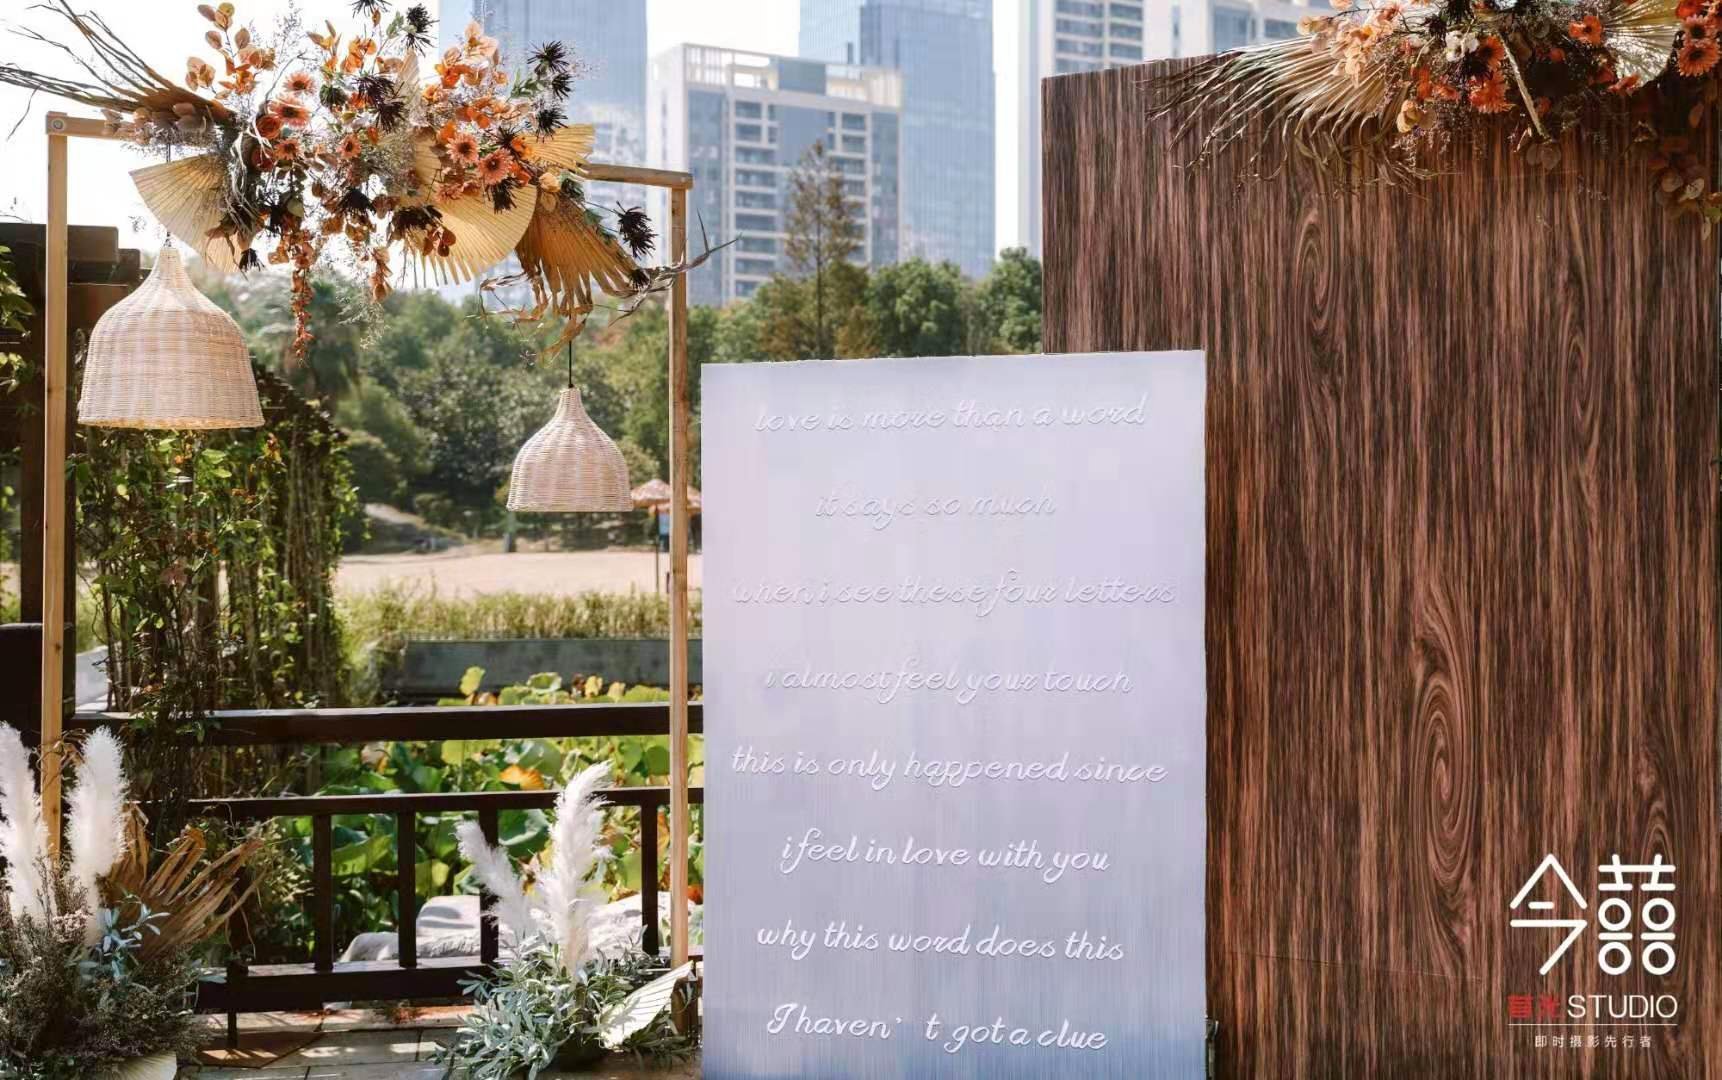 love is more than a word
it says so much
when i see these four letters
i almost feel your touch
this is only happened since
i feel in love with you
why this word does this
I haven't got a clue
今囍
STUDIO
即时摄影先行者